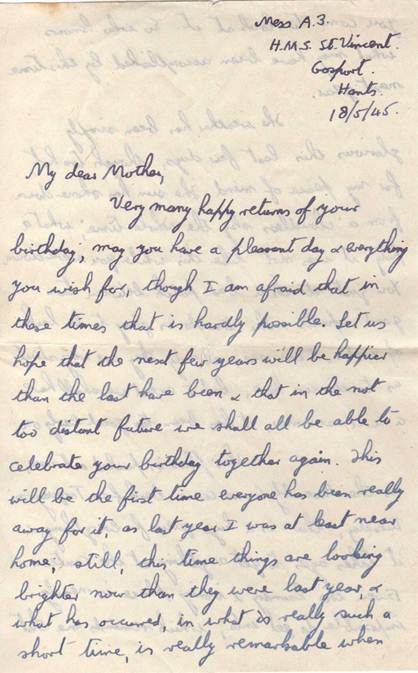 Mess A.3.
H.M.S. St. Vincent.
Gosport.
Hants.
18/5/45.
My dear Mother,
Very many happy returns of your
birthday; may you have a pleasant day & everything
you wish for, though I am afraid that in
these times that is hardly possible. Let us
hope that the next few years will be happier
than the last have been & that in the not
too distant future we shall all be able to
celebrate your birthday together again. This
will be the first time everyone has been really
away for it, as last year I was at least near
home; still, this time things are looking
brighter now than they were last year &
what has occurred, in what is really such a
short time, is really remarkable when